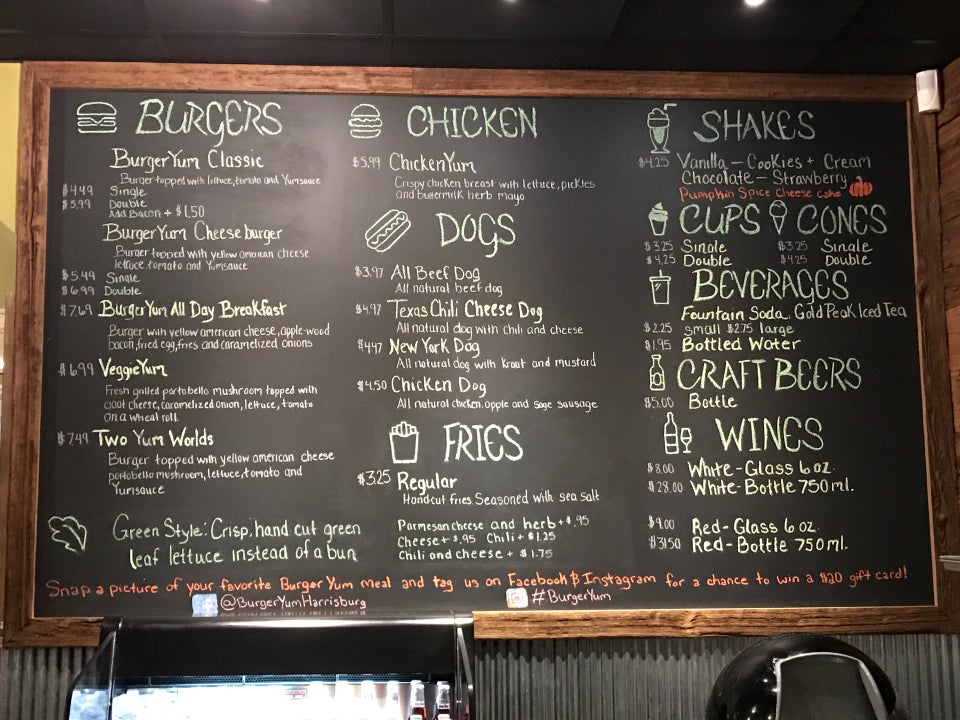 BURGERS
BurgerYum Classic
Burger topped with lettuce, tomato and Yumsauce
$4.49 Single
$5.99 Double
Add Bacon + $1.50
BurgerYum Cheeseburger
Burger topped with yellow american cheese
lettuce, tomato and Yumsauce
$5.49 Single
$6.99 Double
$7.69 BurgerYum All Day Breakfast
Burger with yellow american cheese, apple-wood
bacon, fried egg, fries and caramelized onions
$6.99 VeggieYum
Fresh grilled portobello mushroom topped with
goat cheese, caramelized onion, lettuce, tomato
on a wheat roll.
$7.49 Two Yum Worlds
Burger topped with yellow american cheese
portobello mushroom, lettuce, tomato and
Yumsauce
Green Style: Crisp, hand cut green
leaf lettuce instead of a bun
CHICKEN
$5.99 ChickenYum
Crispy chicken breast with lettuce, pickles
and buttermilk herb mayo
DOGS
$3.97 All Beef Dog
All natural beef dog
$4.97 Texas Chili Cheese Dog
All natural dog with chili and cheese
$4.47 New York Dog
All natural dog with kraut and mustard
$4.50 Chicken Dog
All natural chicken, apple and sage sausage
FRIES
$3.25 Regular
Handcut fries. Seasoned with sea salt
Parmesan cheese and herb + $.95
Cheese + $.95 Chili + $1.25
Chili and cheese + $1.75
SHAKES
$4.25 Vanilla - Cookies + Cream
Chocolate - Strawberry
Pumpkin Spice Cheese cake
CUPS CONES
$3.25 Single $3.25 Single
$4.25 Double $4.25 Double
BEVERAGES
Fountain Soda, Gold Peak Iced Tea
$2.25 small $2.75 large
$1.95 Bottled Water
CRAFT BEERS
$5.00 Bottle
WINES
$8.00 White - Glass 6 oz.
$28.00 White - Bottle 750 ml.
$9.00 Red - Glass 6 oz.
$31.50 Red - Bottle 750 ml.
Snap a picture of your favorite Burger Yum meal and tag us on Facebook & Instagram for a chance to win a $20 gift card!
@BurgerYumHarrisburg #BurgerYum